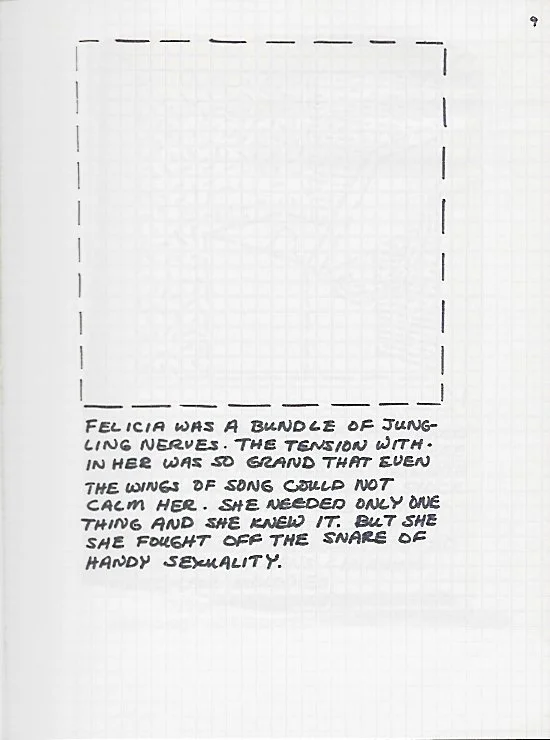 9
FELICIA WAS A BUNDLE OF JUNG-
LING NERVES. THE TENSION WITH-
IN HER WAS SO GRAND THAT EVEN
THE WINGS OF SONG COULD NOT
CALM HER. SHE NEEDED ONLY ONE
THING AND SHE KNEW IT. BUT SHE
SHE FOUGHT OFF THE SNARE OF
HANDY SEXUALITY.